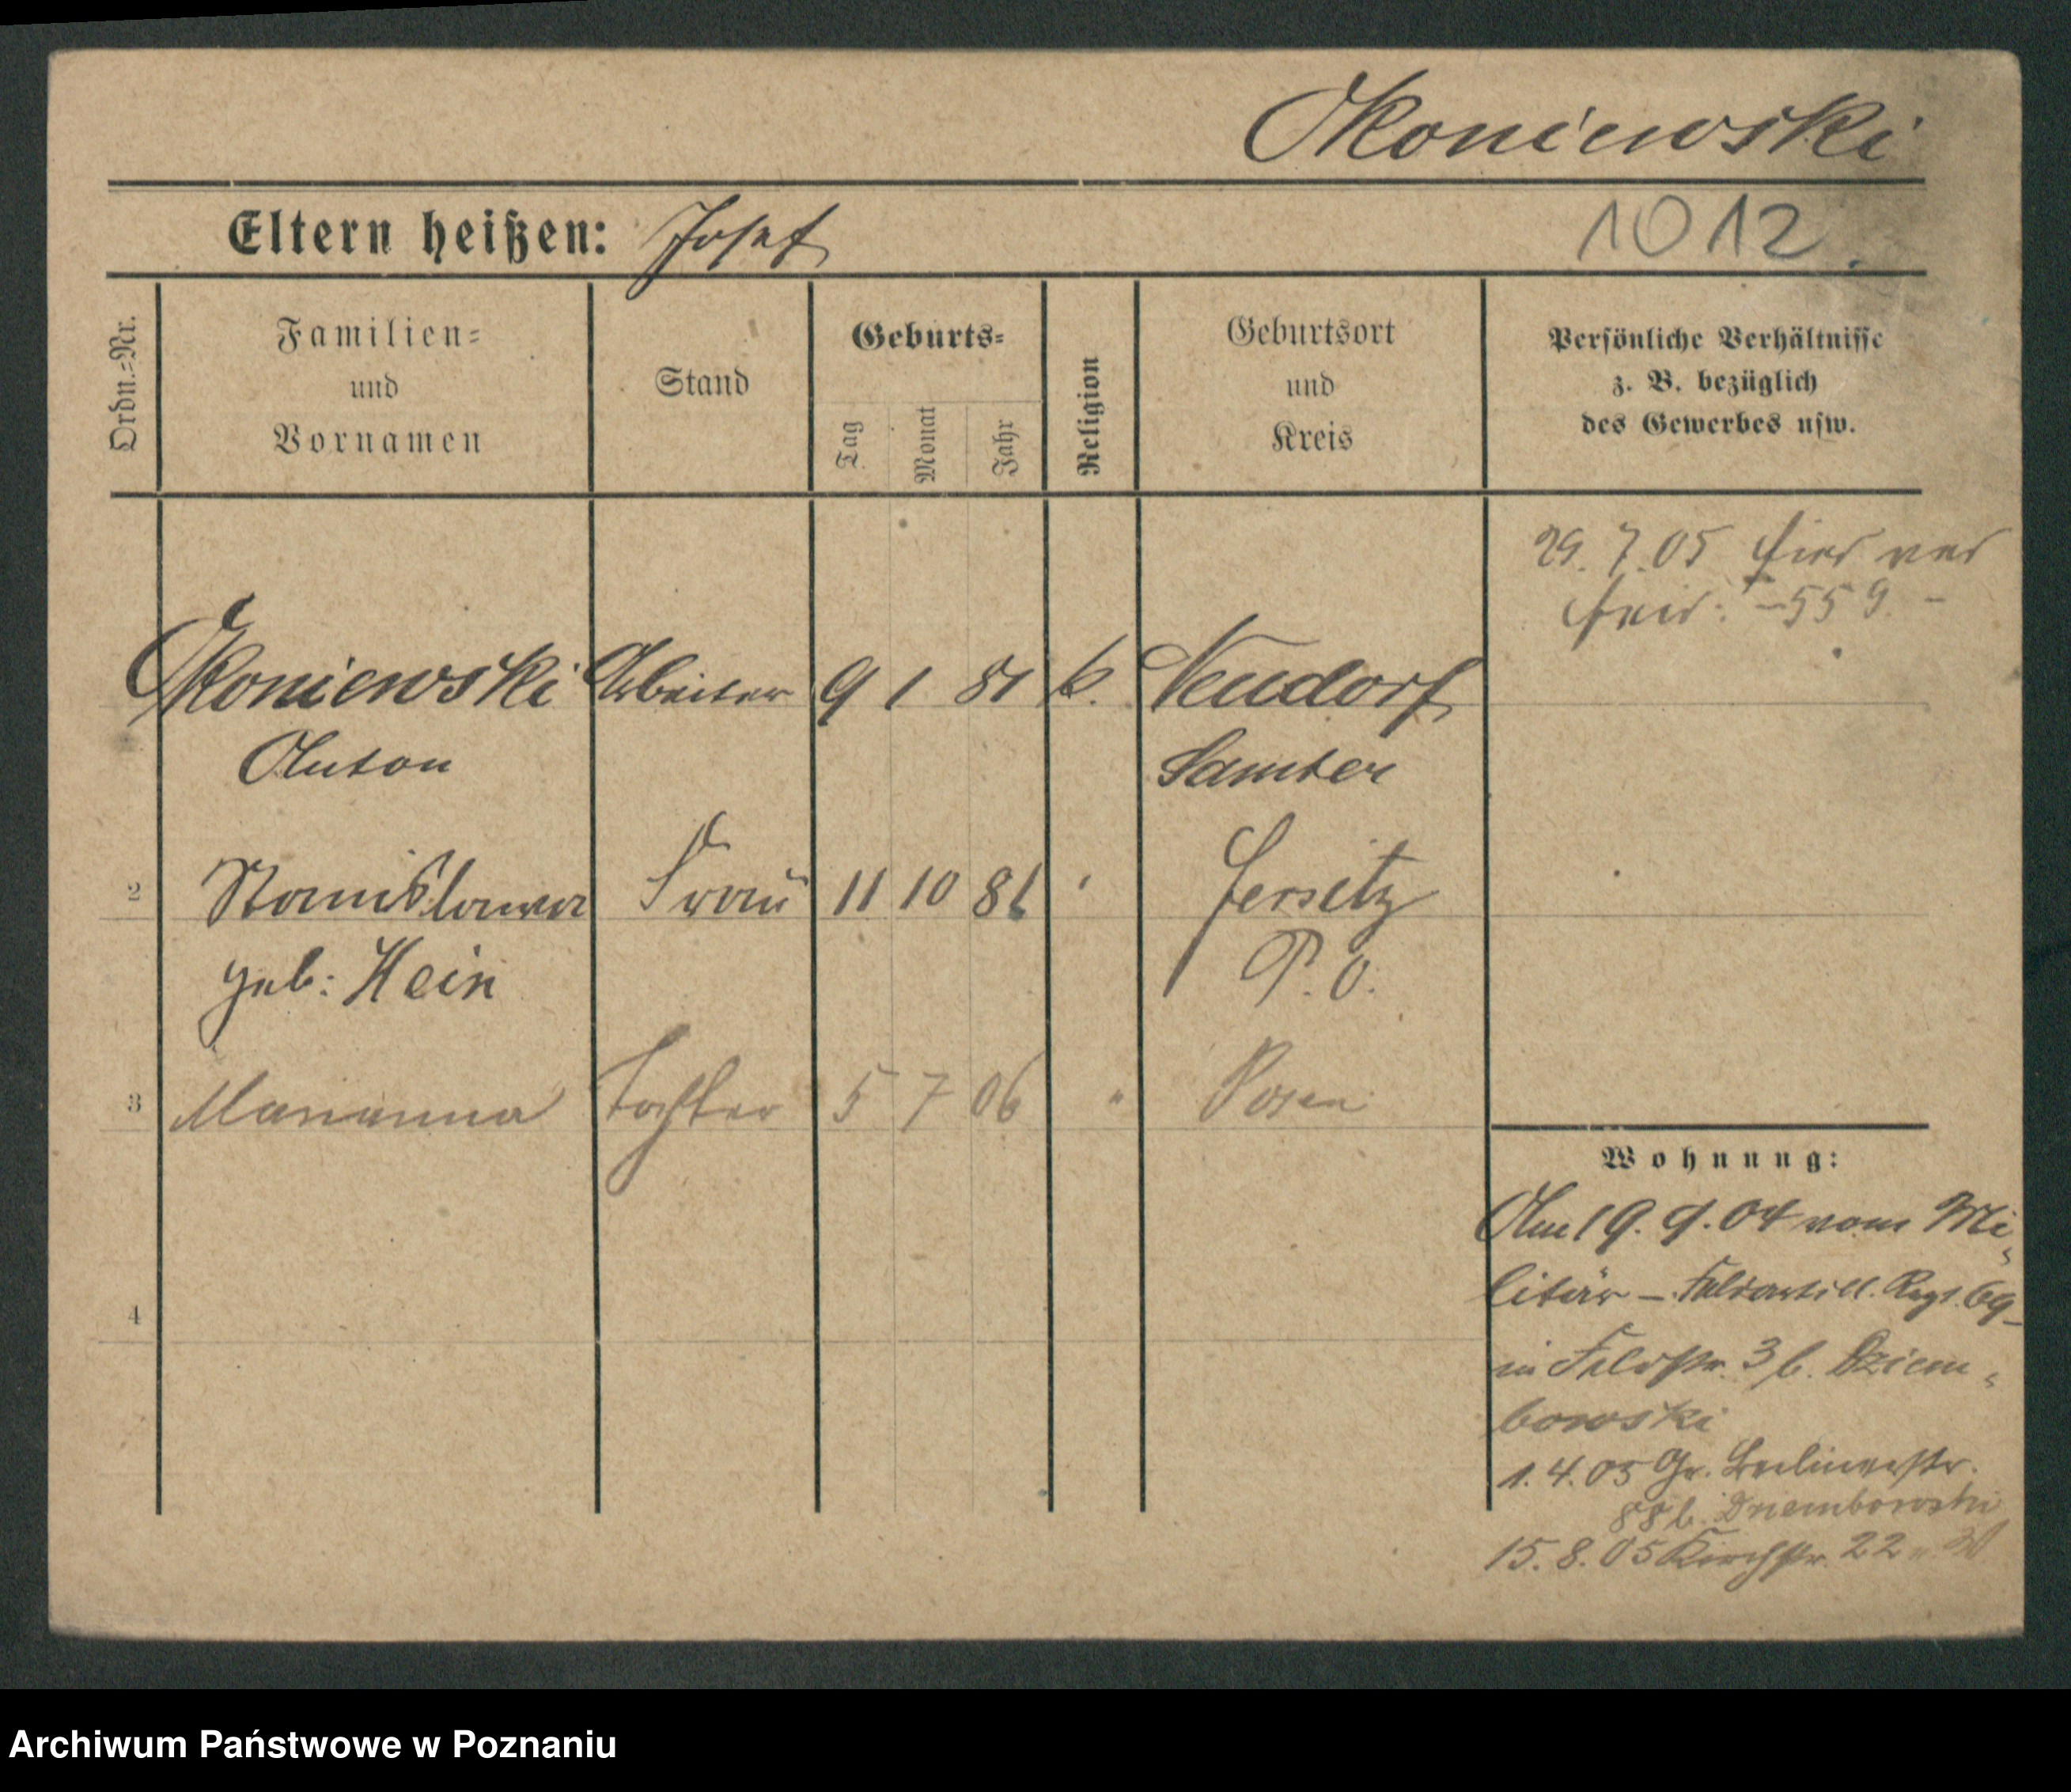 Okoniewski
Eltern heißen: Josef
1012.
Ordn.=Nr.
Familien=
und
Vornamen
Stand
Geburts=
Tag
Monat
Jahr
Religion
Geburtsort
und
Kreis
Persönliche Verhältnisse
z. B. bezüglich
des Gewerbes usw.
29. 7. 05 hier ver
heir: -559.-
Okoniewski Arbeiter 9 1 81 k. Neudorf
Anton Samter
2 Stanislawa Frau 11 10 86 " Jersitz
geb: Hein P. O.
3 Marianna Tochter 5 7 06 " Posen
Wohnung:
Am 19. 9. 04 vom Mi=
litär – Feldartill. Regt. 69 –
in Feldstr. 3 b. Dziem=
bowski
4
1. 4. 05 Gr. Berlinerstr.
88 b. Dziembowski
15. 8. 05 Kirchstr. 22
Archiwum Państwowe w Poznaniu